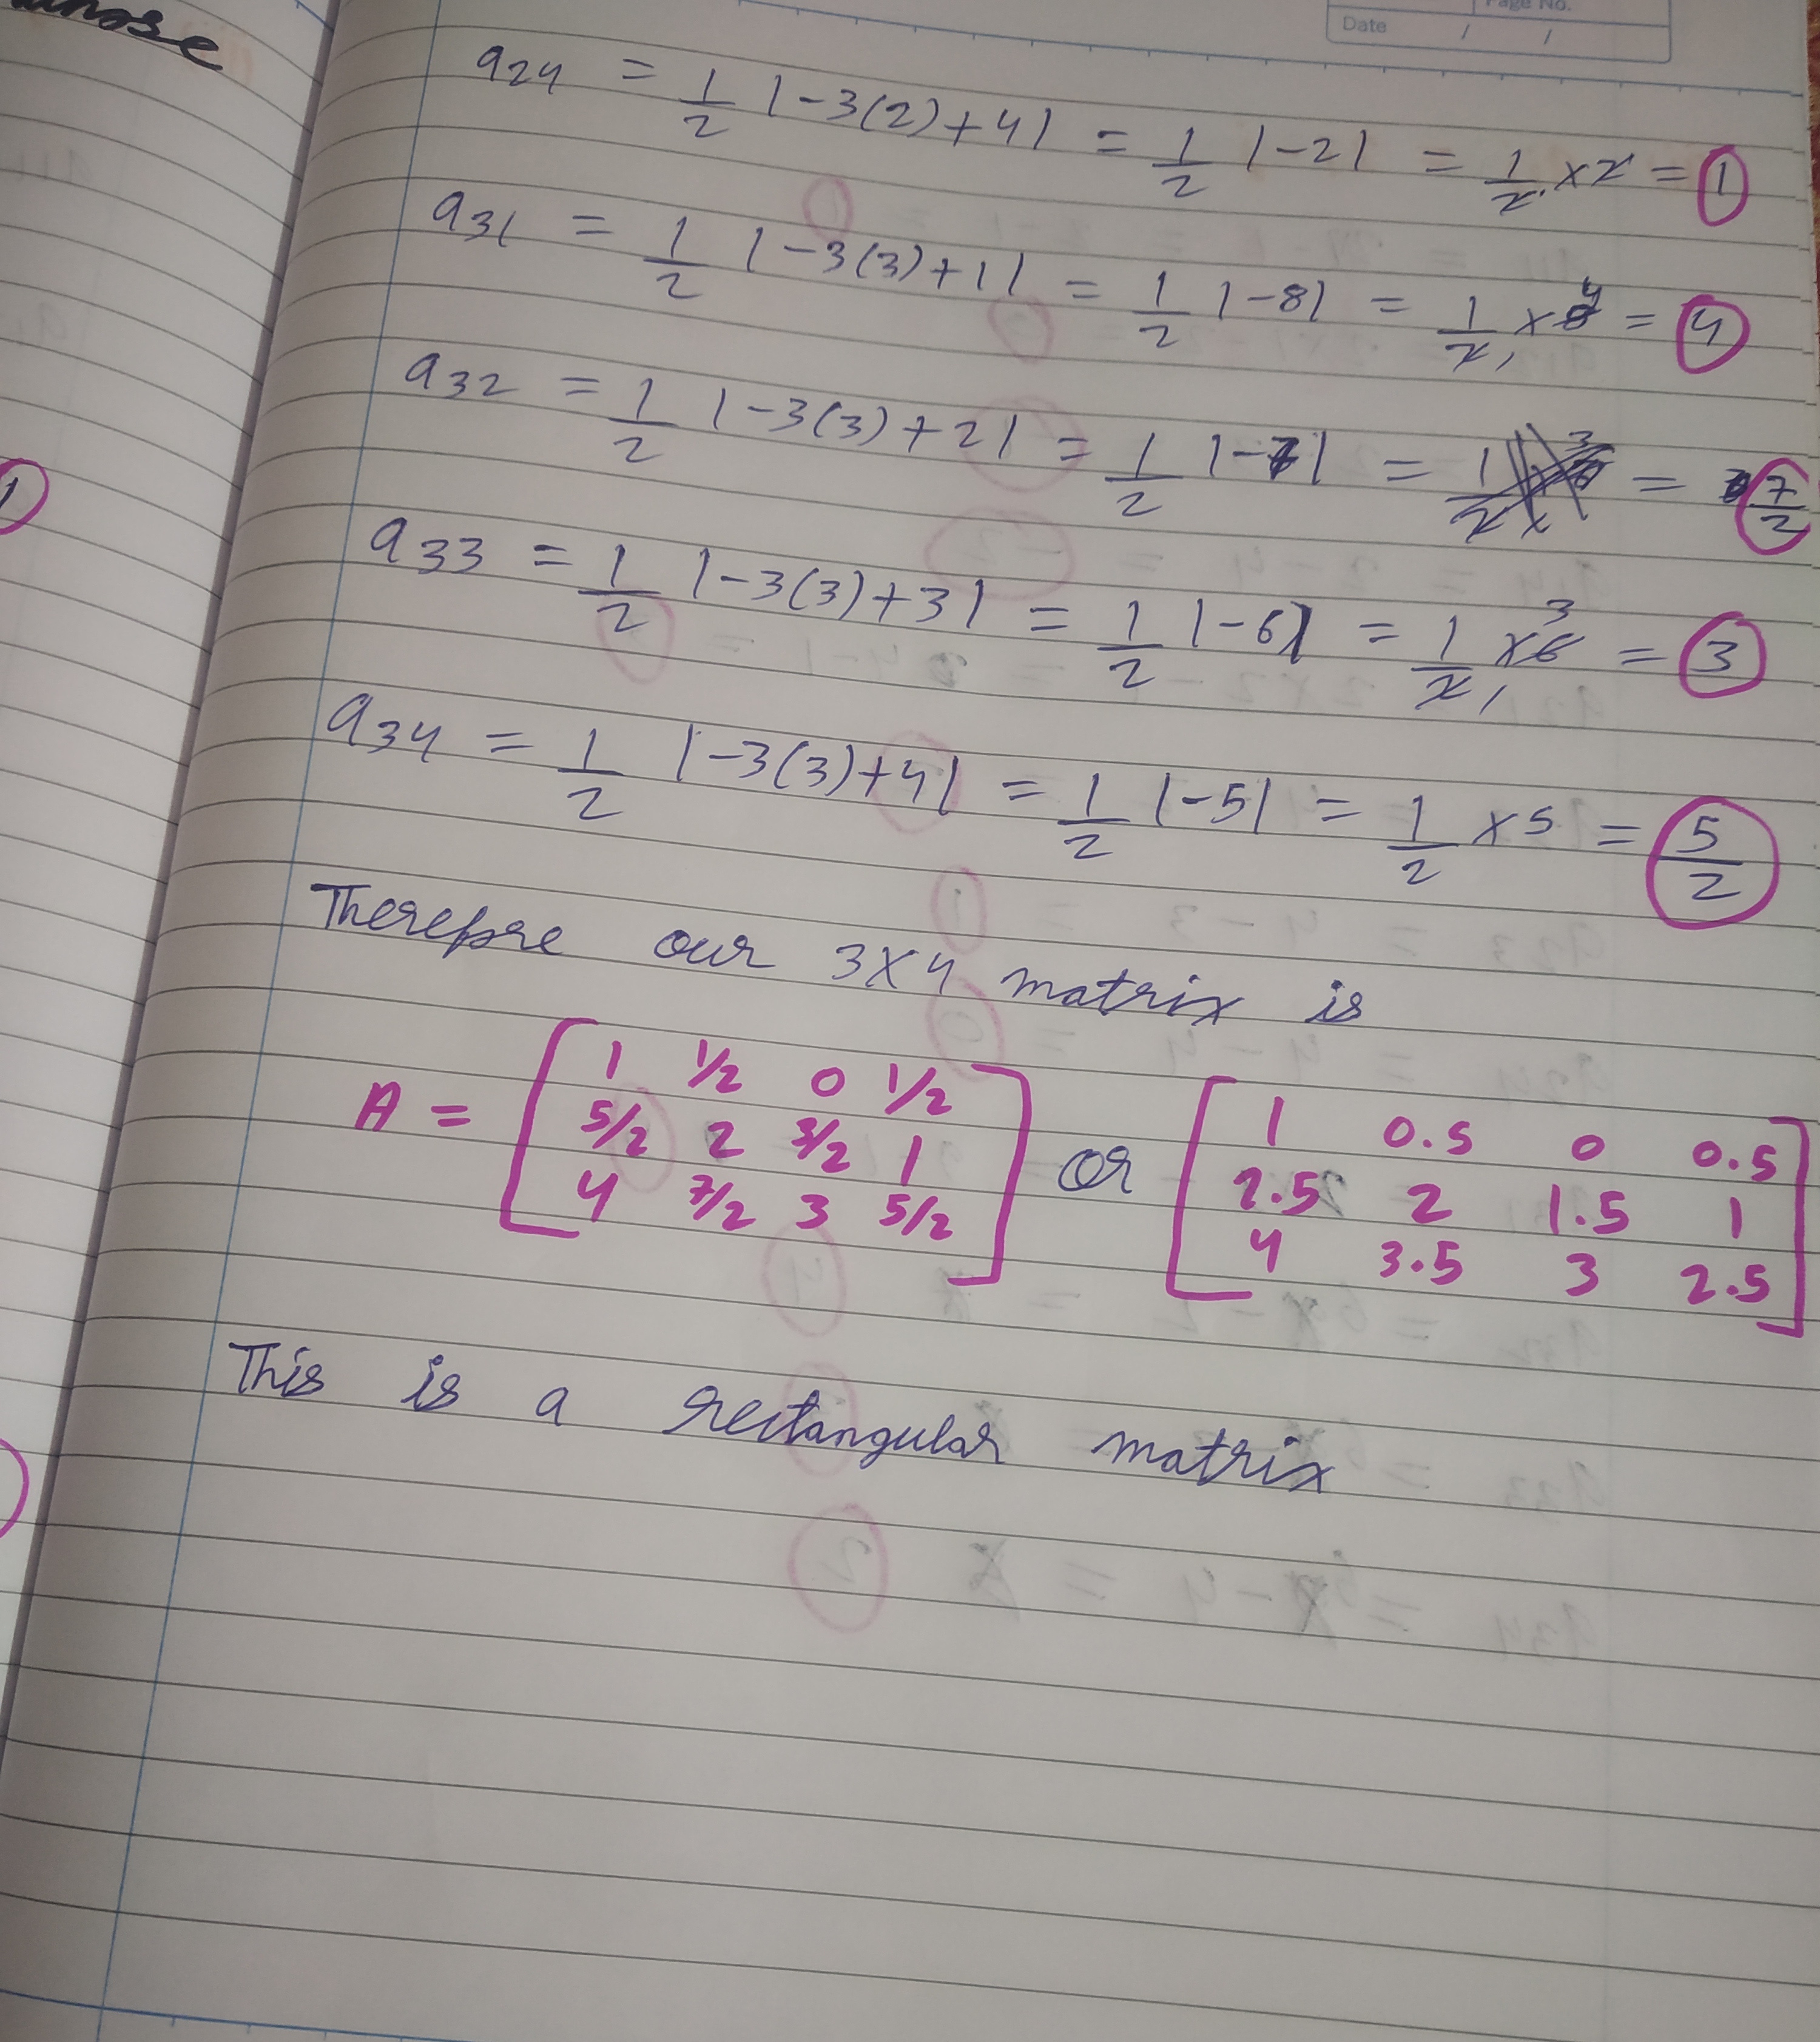 Page No.
Date / /
a24 = 1/2 |-3(2)+4| = 1/2 |-2| = 1/2 x2 = 1
a31 = 1/2 |-3(3)+1| = 1/2 |-8| = 1/2 x8 4 = 4
a32 = 1/2 |-3(3)+2| = 1/2 |-7| = 1/2 = 7/2
a33 = 1/2 |-3(3)+3| = 1/2 |-6| = 1/2 x6 3 = 3
a34 = 1/2 |-3(3)+4| = 1/2 |-5| = 1/2 x5 = 5/2
Therefore our 3x4 matrix is
A = [1 1/2 0 1/2
5/2 2 3/2 1
4 7/2 3 5/2] or [1 0.5 0 0.5
2.5 2 1.5 1
4 3.5 3 2.5]
This is a rectangular matrix